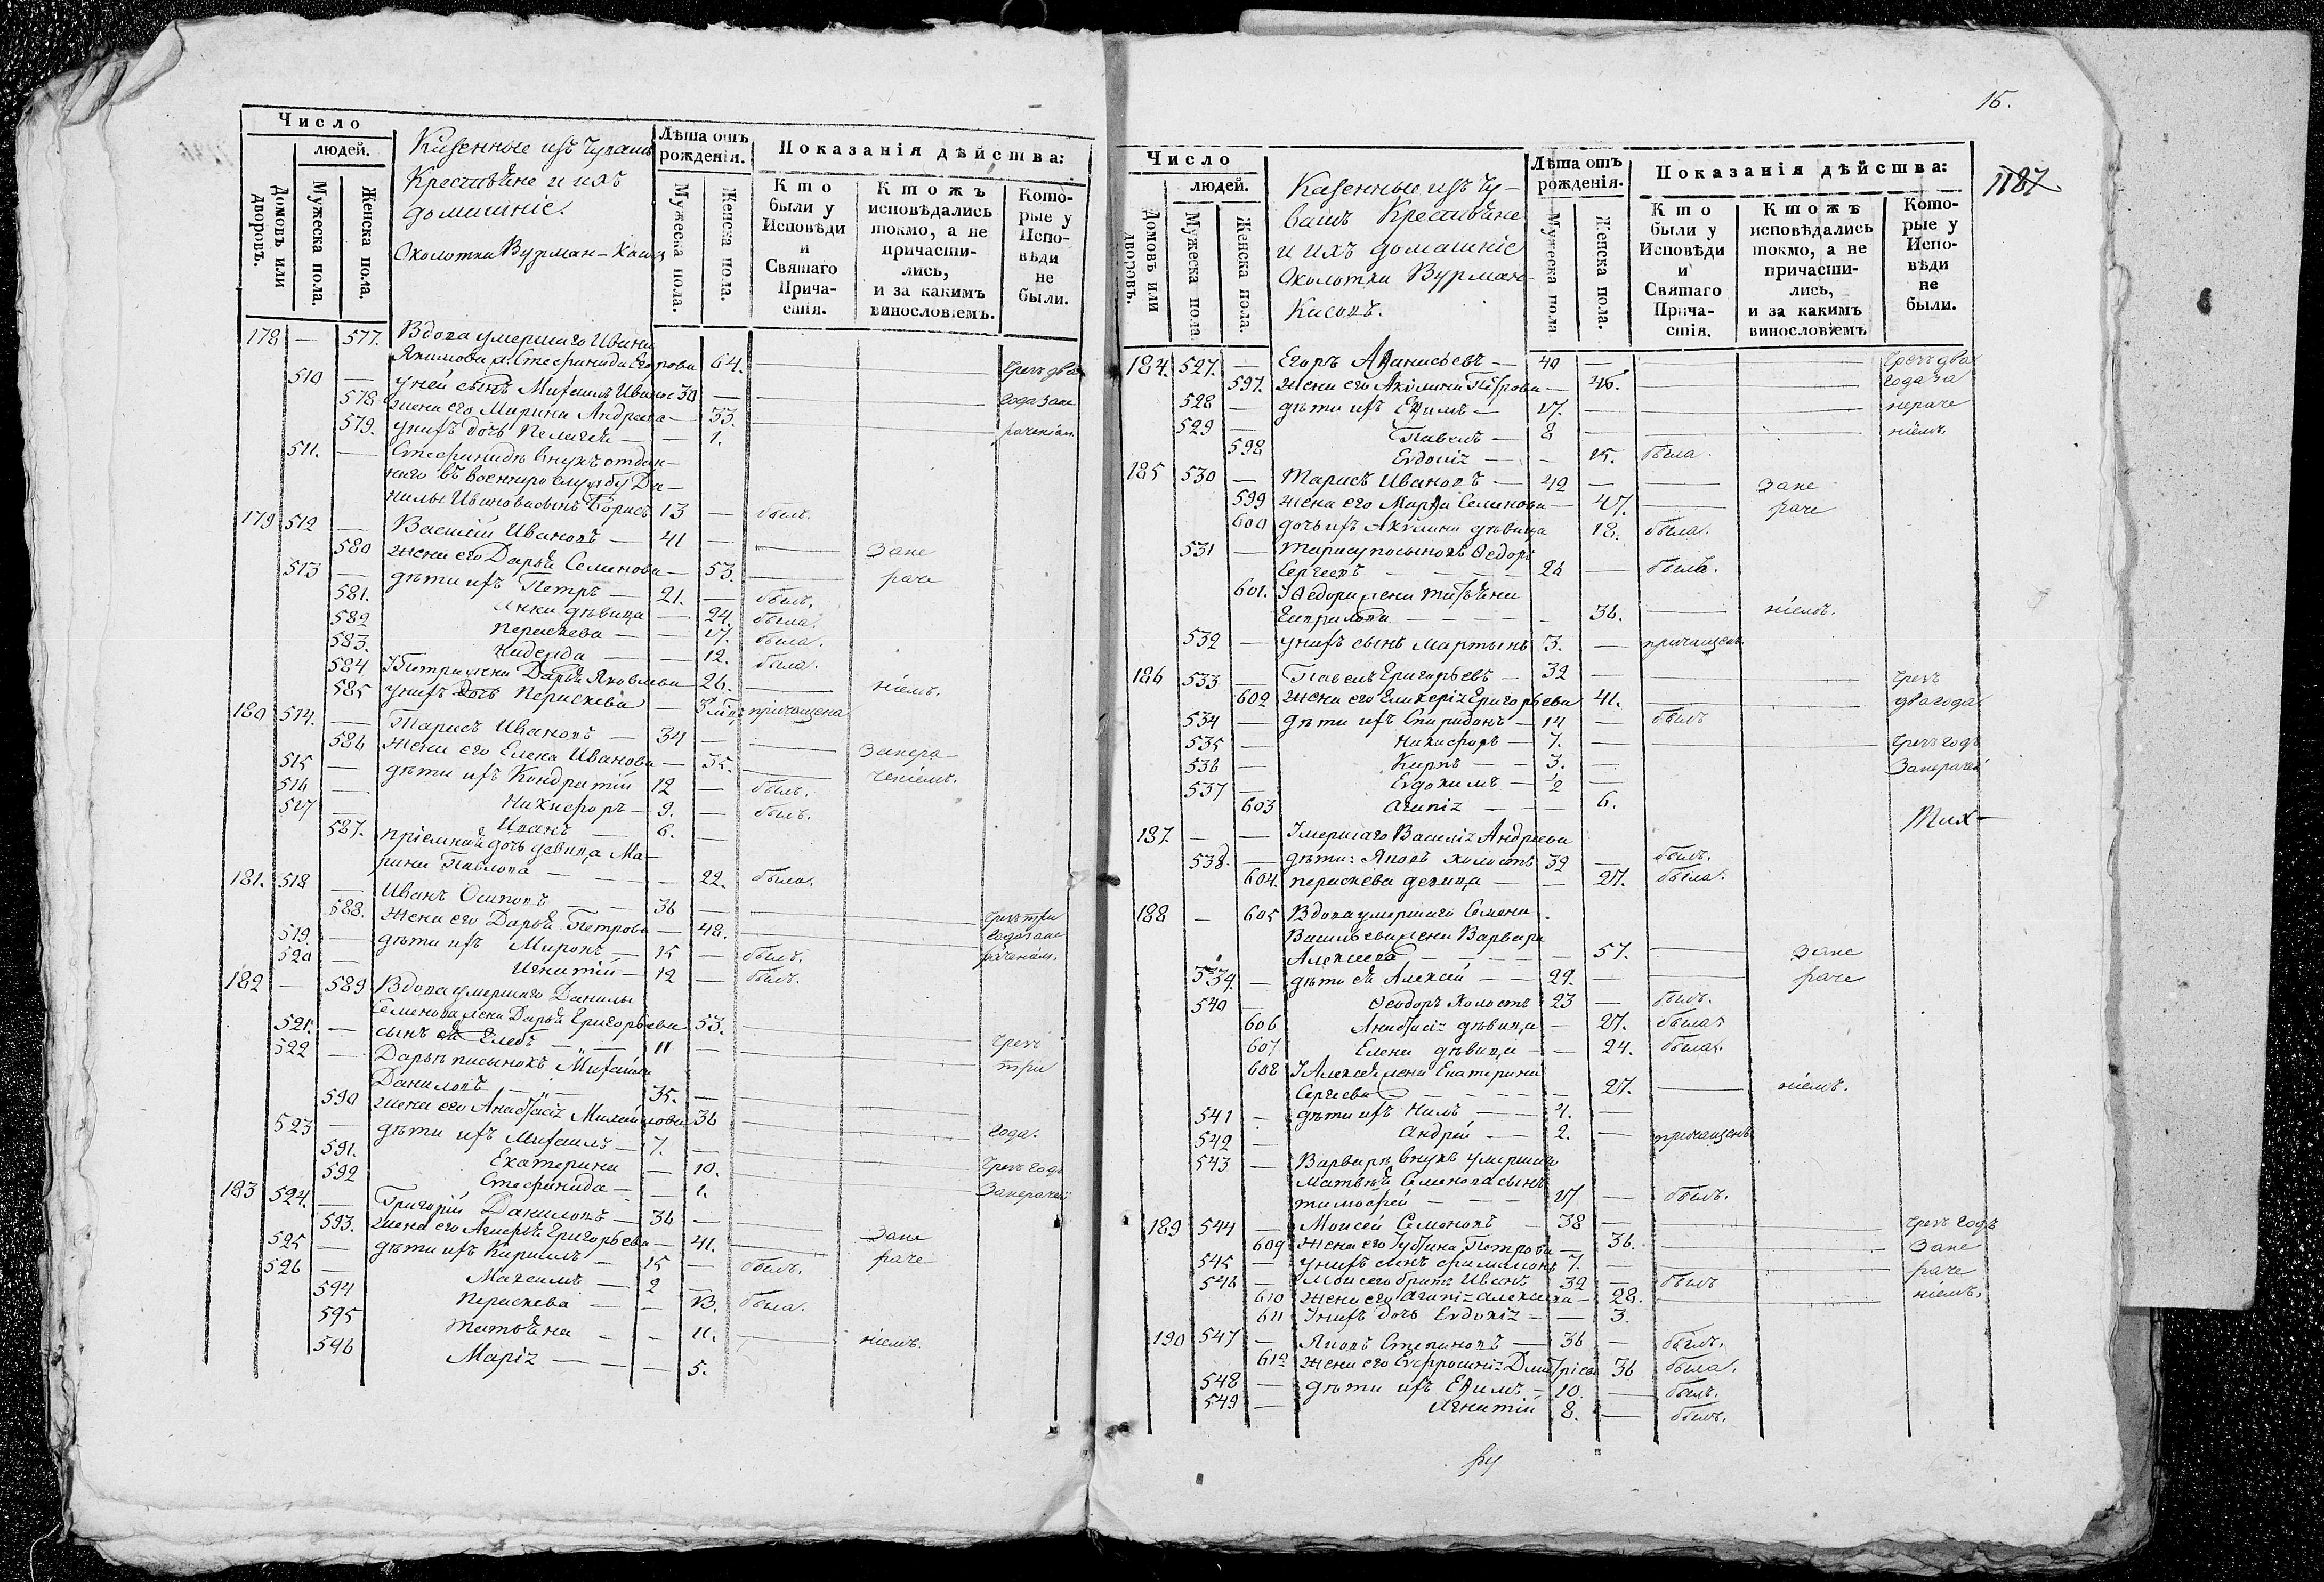 Число
людей.
Домовъ или дворовъ.
Мужеска пола.
Женска пола.
Казенные изъ Чувашъ
Крестьяне и ихъ
домашніе.
Околотка Вурман-Касы
Лѣта отъ рожденія.
Мужеска пола.
Женска пола.
Показанія дѣйства:
Кто были у Исповѣди и Святаго Причастія.
Ктожъ исповѣдались токмо, а не причастились, и за какимъ винословіемъ.
Которые у Исповѣди не были.
178 — 577. Вдова умершаго Ивана
Якимова ж. Стефанида Егорова 64. чрезъ два
510 — у ней сынъ Михаилъ Иванов 30 — года зане
578 жена его Марина Андреева — 33. раченіем
579. у нихъ дочь Пелагея — — 1.
511. — Стефаниды внукъ отдан-
наго въ военную службу Да-
нилы Иванова сынъ Борисъ 13 — былъ.
179 512 — Василій Ивановъ — 41 —
580 жена его Дарья Семенова — 53. Зане
513 — дѣти ихъ Петръ — 21. — былъ. раче
581. Анна дѣвица — 24. была.
582 Параскева — — 17. была.
583. Надежда — — 12. была.
584 У Петра жена Дарья Яковлева 26. — ніемъ.
585 у нихъ дочь Параскева — причащена
180 514. — Тарасъ Ивановъ — 34 —
586 жена его Елена Иванова — 35. Занера
515 — дѣти ихъ Кондратій 12 — былъ. ченіемъ.
516 — Никифоръ — 9. — былъ.
517 — Иванъ — 6. —
587. пріемная дочь девица Ма-
рина Павлова — — 22. была.
181. 518 — Иванъ Осиповъ — 36 —
588. жена его Дарья Петрова — 48. чрезъ три
519. — дѣти ихъ Миронъ — 15 — былъ. года зане
520 — Игнатій — 12 — былъ. раченіем.
182 — 589 Вдова умершаго Данилы
Семенова жена Дарья Григорьева 53.
521. — сынъ ея Глебъ — 11 — чрезъ
522 — Дарьи пасынокъ Михаилъ три
Даниловъ — 35. —
590 жена его Анастасія Михайлова 36 года.
523 — дѣти ихъ Михаилъ — 7. —
591. Екатерина — 10. чрезъ годъ
592 Стефанида — — 1. Занерачен
183 524. — Григорій Даниловъ — 36 —
593. жена его Агафья Григорьева — 41. Зане
525 — дѣти ихъ Кирилъ — 15 — былъ. раче
526 — Максимъ — 2 —
594 Параскева — — 13. была.
595 Татьяна — — 11. — ніемъ.
596 Марія — — — 5.
15.
1187
Число
людей.
Домовъ или дворовъ.
Мужеска пола
Женска пола.
Казенные изъ Чу-
вашъ Крестьяне
и ихъ домашніе
Околотка Вурман-
Касовъ.
Лѣта отъ рожденія.
Мужеска пола
Женска пола.
Показанія дѣйства:
Кто были у Исповѣди и Святаго Причастія.
Ктожъ исповѣдались токмо, а не причастились, и за какимъ винословіемъ
Которые у Исповѣди не были.
184. 527. — Егоръ Аѳанасьевъ — 40 — чрезъ два
597. жена его Акилина Петрова — 46. года за
528 — дѣти ихъ Еѳимъ — 17. — нераче
529 — Павелъ — 8 — ніемъ.
598 Евдокія — — 15. была.
185 530 — Тарасъ Ивановъ — 42 — Зане
599 жена его Марѳа Семенова — 47. раче
600 дочь ихъ Акилина дѣвица 18. была.
531 — Тараса пасынокъ Ѳедоръ
Сергеевъ — 26 — былъ.
601. У Ѳедора жена Татьяна
Гаврилова — 36. — ніемъ.
532 — у нихъ сынъ Мартынъ 3. — причащенъ
186 533 — Павелъ Григорьевъ — 32 — чрезъ
602 жена его Гликерія Григорьева 41. два года
534 — дѣти ихъ Спиридонъ — 14 — былъ
535 — Никифоръ — 7. — чрезъ годъ
536 — Карпъ — 3. — Занерачен
537 — Евдокимъ — 1/2 —
603 Агапія — — 6.
Мих-
187. — — Умершаго Василія Андреева
538. — дѣти: Яковъ холостъ 32 — былъ.
604. Параскева девица — — 27. была.
188 — 605 Вдова умершаго Семена
Васильева жена Варвара
Алексеева — 57. — Зане
539. — дѣти ея Алексей — 29. — раче
540 — Ѳеодоръ холостъ 23 — былъ.
606 Анастасія дѣвица — 27. была.
607 Елена дѣвица — — 24. была.
608 У Алексея жена Екатерина
Сергеева — 27. — ніемъ.
541 — дѣти ихъ Нилъ — 4. —
542 — Андрей — 2. — причащенъ
543 — Варвары внукъ умершаго
Матвея Семенова сынъ
Тимофей — 17 — былъ.
189 544 — Моисей Семеновъ — 38 — чрезъ годъ
609 жена его Устина Петрова — 36. Зане
545 — у нихъ сынъ Филимонъ 7. — раче
546 — Моисея братъ Иванъ 32 — былъ ніемъ.
610 жена его Агапія Алексеева — 28.
611 У нихъ дочь Евдокія — — 3.
190 547 — Яковъ Степановъ — 36 — былъ.
612 жена его Евфросинія Дмитріева 36 была.
548 — дѣти ихъ Еѳимъ — 10. — былъ.
549 — Игнатій 8. — былъ.